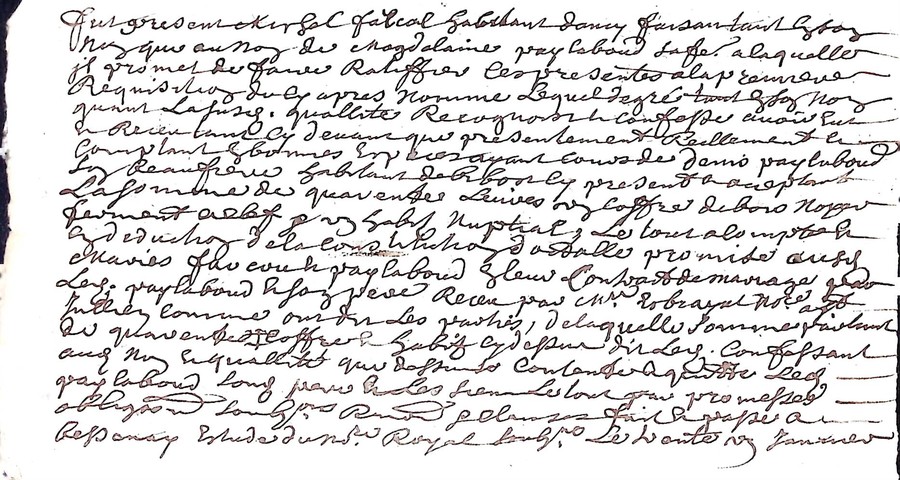 fut present Michel fascal habitant dancy faisant tant en son
Nom que au Nom de Magdelaine paylaboud sa fe. a laquelle
il promet de faire Ratiffier les presentes a la premiere
Requisition du cy apres Nomme Lequel de gre tant en son Nom
quant La susd. quallité Recognoist et confesse avoir eu
et Receu tant cy devant que presentement Reellement et
comptant en bonnes especes ayant cours de Denis paylaboud
son Beaufrere habitant de present et aceptant
La somme de quarente Livres un coffre de bois Noyer
fermant a clef un habit Nuptial, Le tout a compte et
en deduction de la constitution dotalle promise ausd
Maries par paylaboud en leur Contract de mariage
Led. paylaboud son pere Receu par Me Nore
Juillet comme ont dit Les parties, de laquelle somme
de quarente coffre et habit cy dessus dit Led. Confessant
aud Nom et quallité que dessus Contente et quitte Led
paylaboud son pere et Les siens Le tout par promesses
obligaon soubzmis Renon et clauses fait et passé a
bessenay Estude du Nre Royal soubzne Le trente un Janvier